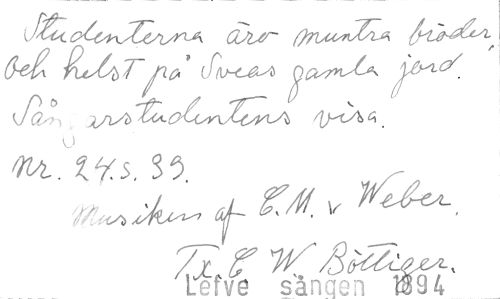 Studenterna äro muntra bröder,
och helst på Sveas gamla jord.
Sångarstudentens visa.
Nr. 24. s. 39.
Musiken af C. M. v Weber.
Tx. C. W. Böttiger.
Lefve sången 1894